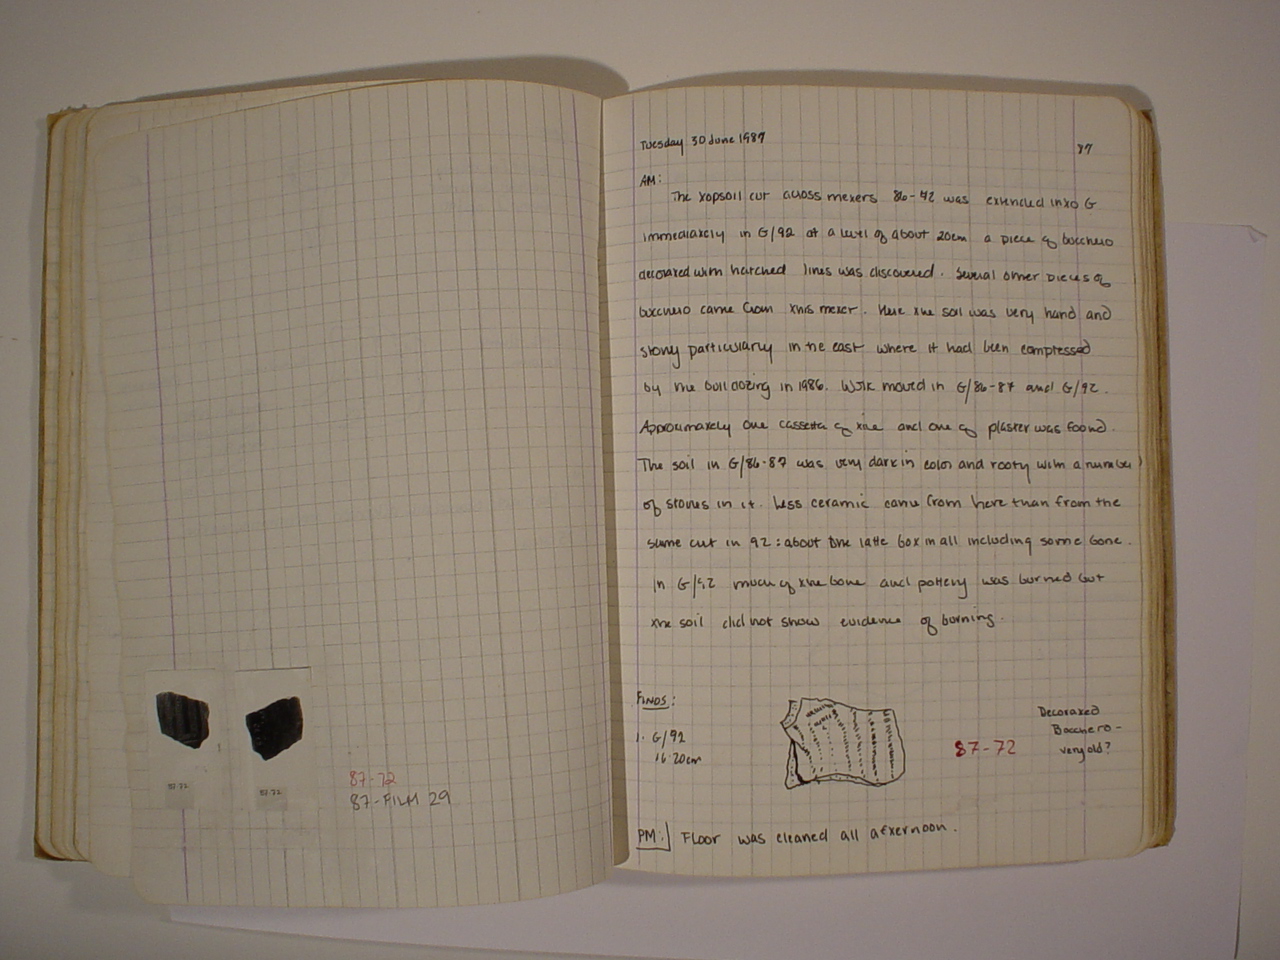 87-72
87-72
87-72
87-FILM 29
Tuesday 30 June 1987
87
AM:
The topsoil cut across meters 86-92 was extended into G
immediately in G/92 at a level of about 20cm a piece of bucchero
decorated with hatched lines was discovered. Several other pieces of
bucchero came from this meter. Here the soil was very hard and
stony particularly in the east where it had been compressed
by the bulldozing in 1986. Work moved in G/86-87 and G/92.
Approximately one cassetta of tile and one of plaster was found.
The soil in G/86-87 was very dark in color and rooty with a number
of stones in it. Less ceramic came from here than from the
same cut in 92: about one latte box in all including some bone.
In G/92 much of the bone and pottery was burned but
the soil did not show evidence of burning.
FINDS:
1. G/92
16-20cm
87-72
Decorated
Bucchero -
very old?
PM: Floor was cleaned all afternoon.